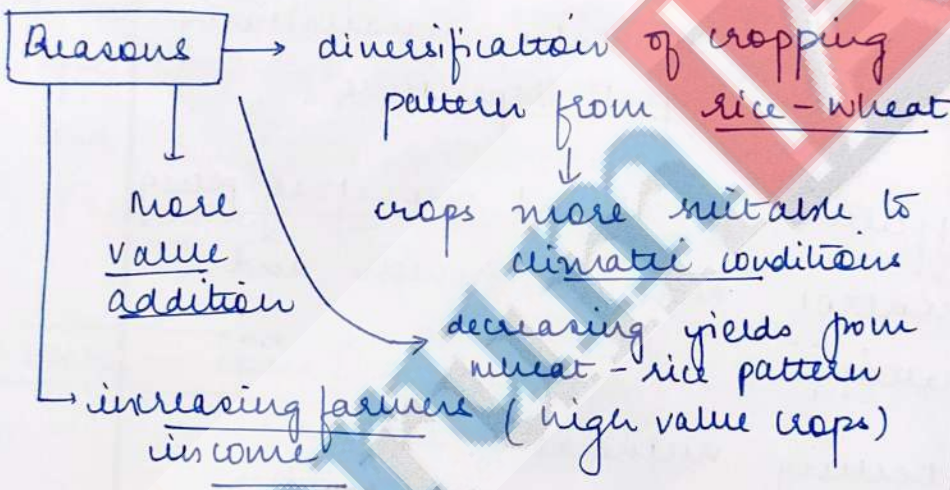 Reasons → diversification of cropping
pattern from rice-wheat
↓
crops more suitable to
climatic conditions
More
value
addition
decreasing yields from
wheat-rice pattern
increasing farmers (high value crops)
income
rum